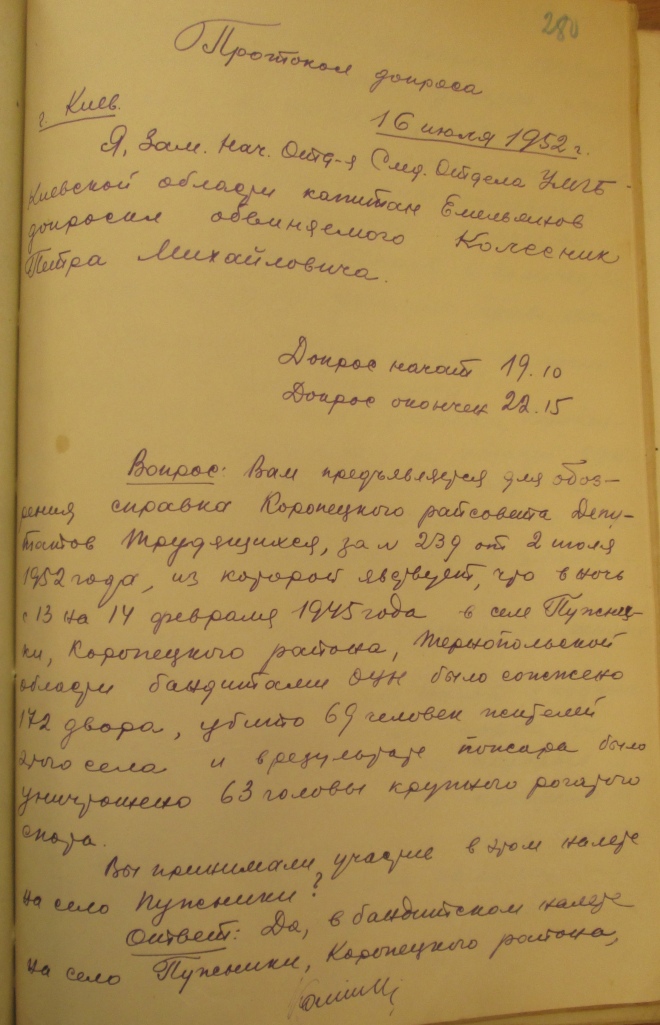 280
Протокол допроса
г. Киев.
16 июля 1952 г.
Я, Зам. Нач. Отд-я След. Отдела УМГБ
Киевской области капитан Емельянов
допросил обвиняемого Колесник
Петра Михайловича.
Допрос начат 19.10
Допрос окончен 22.15
Вопрос: Вам предъявляется для обоз-
рения справка Коропецкого райсовета Депу-
татов Трудящихся, за № 239 от 2 июля
1952 года, из которой явствует, что в ночь
с 13 на 14 февраля 1945 года в селе Пужни-
ки, Коропецкого района, Тернопольской
области бандитами ОУН было сожжено
172 двора, убито 69 человек жителей
этого села и в результате пожара было
уничтожено 63 головы крупного рогатого
скота.
Вы принимали участие в этом налете
на село Пужники?
Ответ: Да, в бандитском налете
на село Пужники, Коропецкого района,